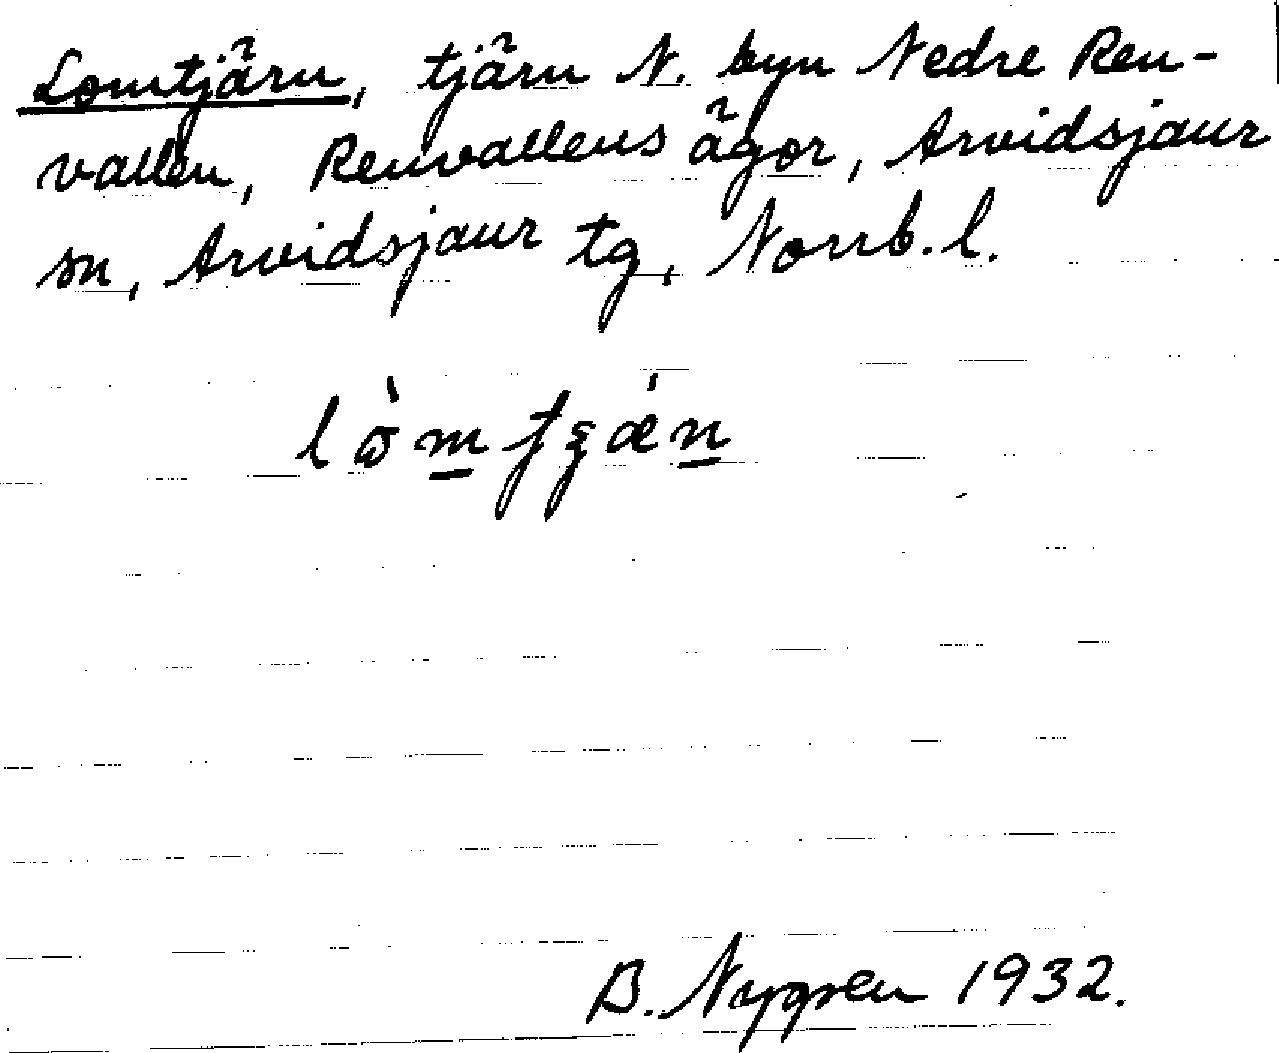 Lomtjärn, tjärn N. byn Nedre Ren-
vallen, Renvallens ägor, Arvidsjaur
sn, Arvidsjaur tg, Norrb. l.
B. Nygren 1932.